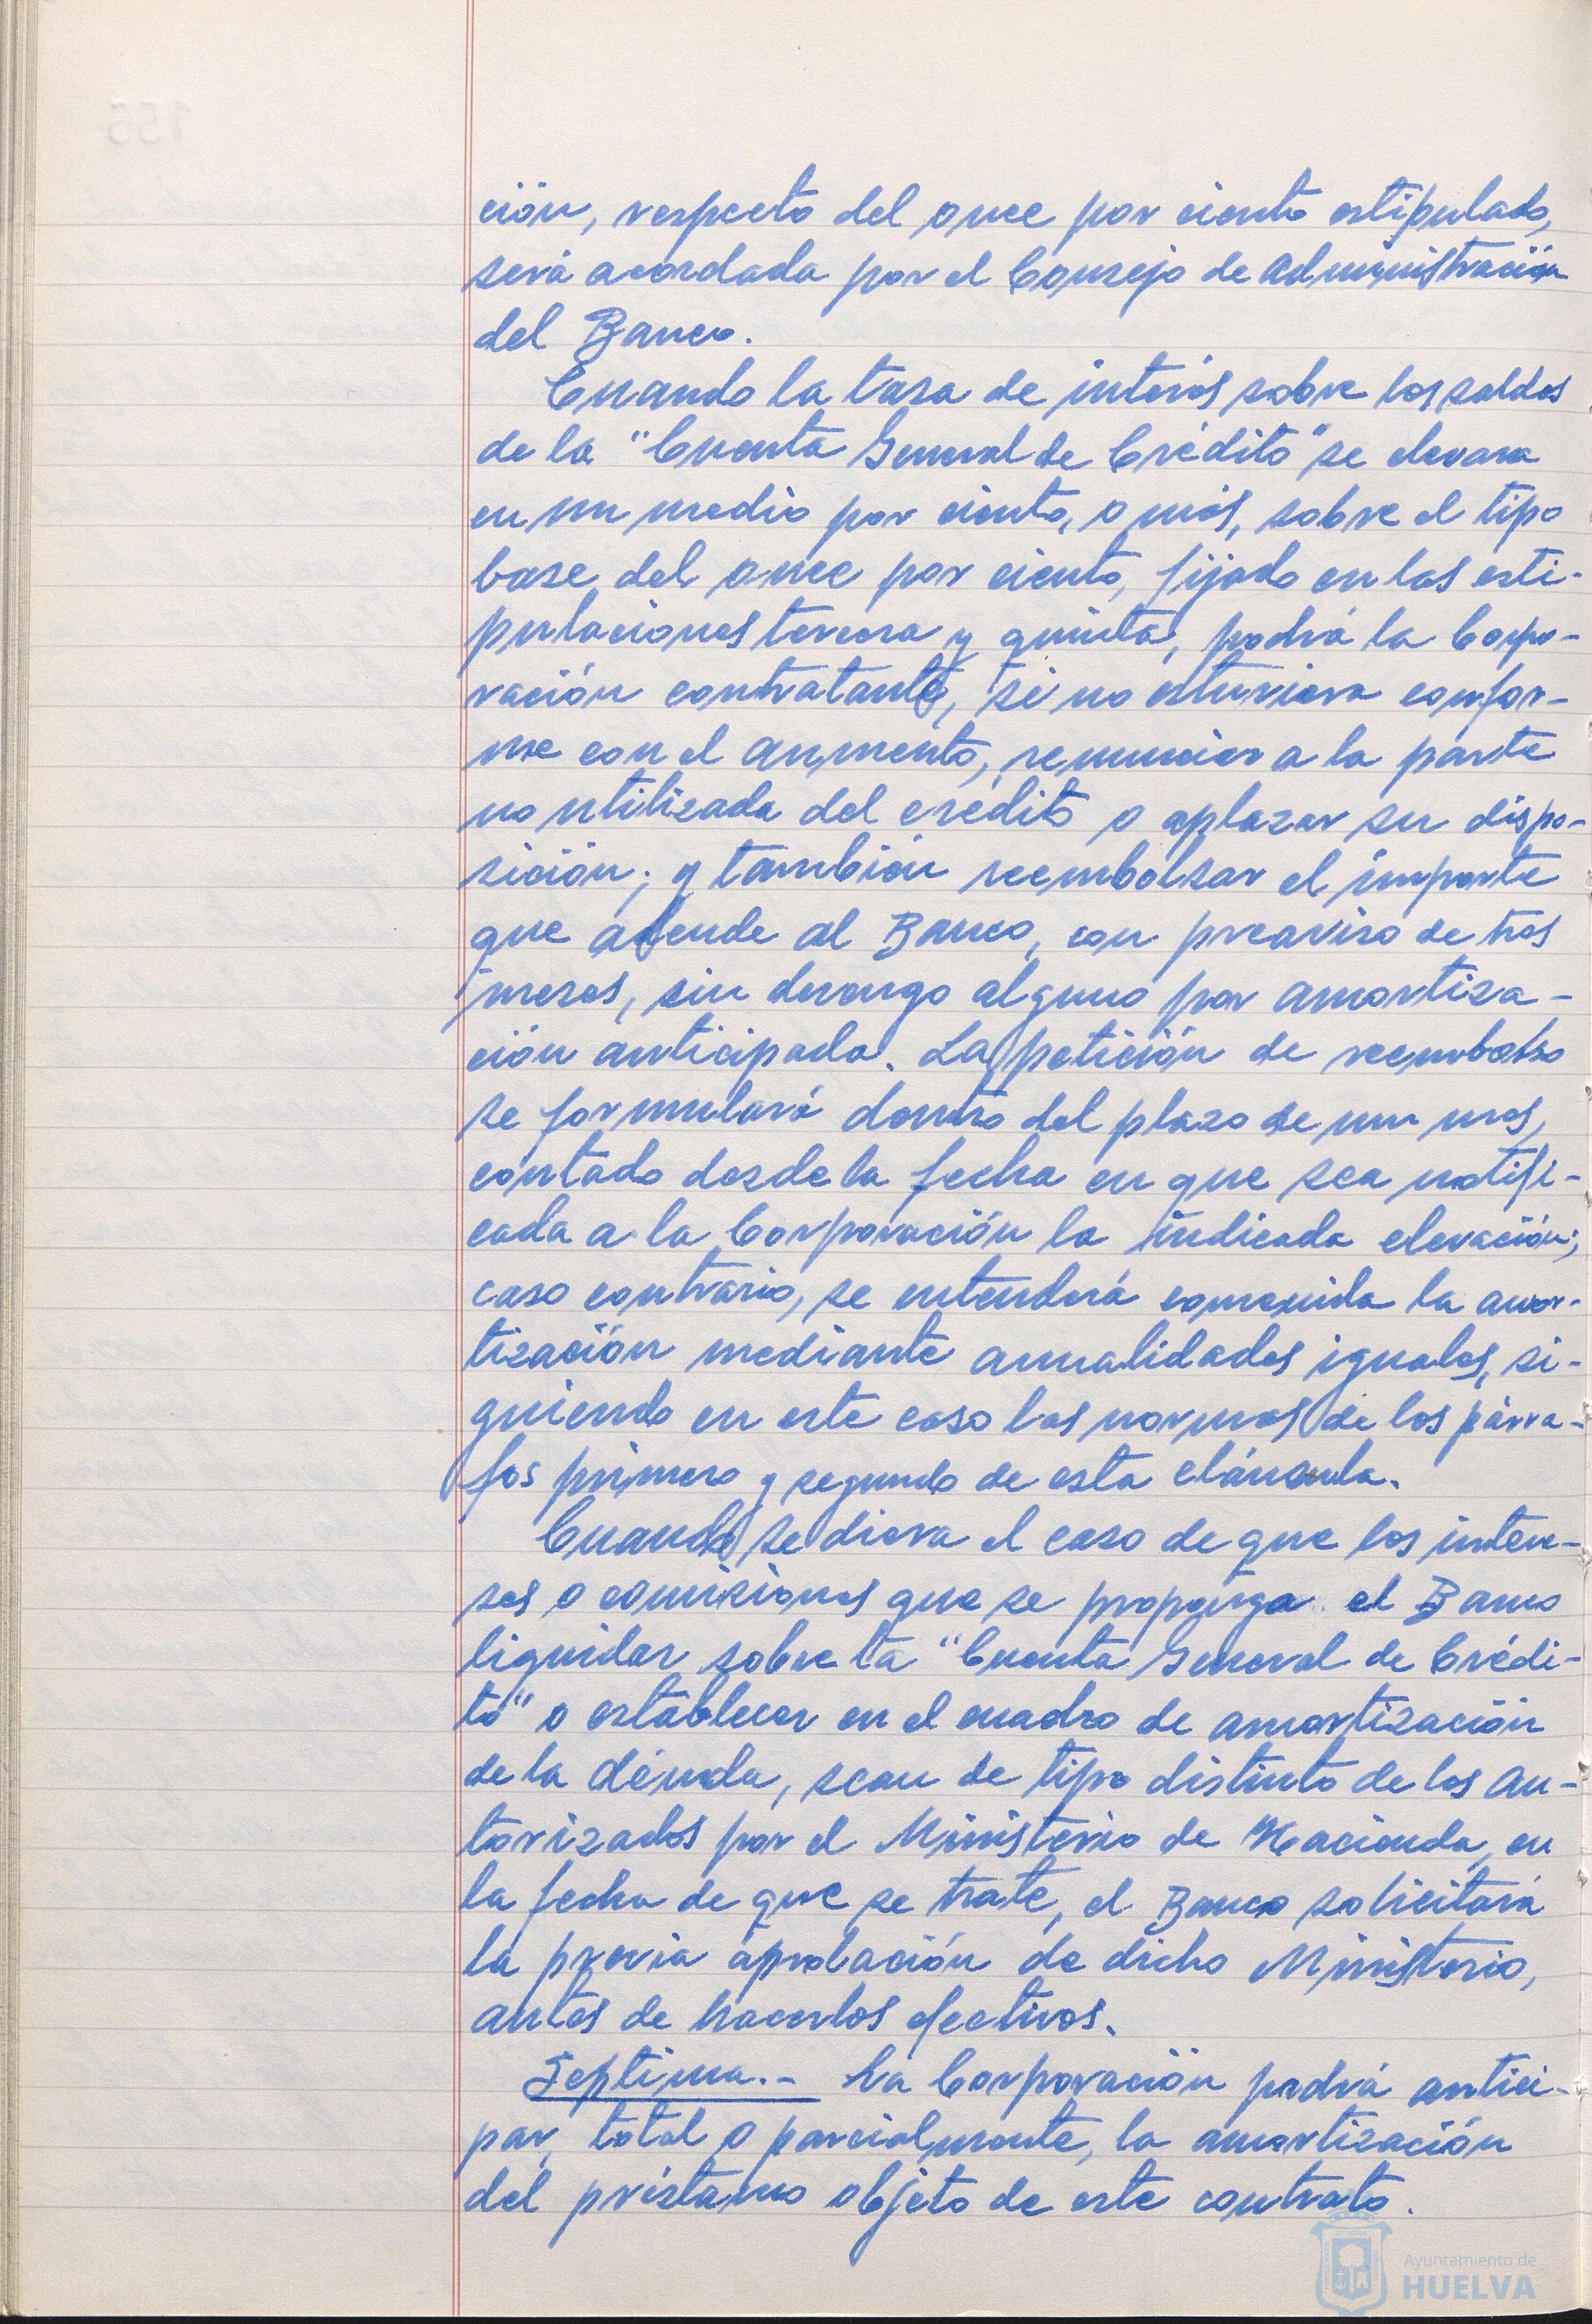 ción, respecto del once por ciento estipulado,
será acordada por el Consejo de Administración
del Banco.
Cuando la tasa de interés sobre los saldos
de la "Cuenta General de Crédito" se elevara
en un medio por ciento, o más, sobre el tipo
base del once por ciento, fijado en las esti-
pulaciones tercera y quinta, podrá la Corpo-
ración contratante, si no estuviera confor-
me con el aumento, renunciar a la parte
no utilizada del crédito o aplazar su dispo-
sición; y también reembolsar el importe
que adeude al Banco, con preaviso de tres
meses, sin devengo alguno por amortiza-
ción anticipada. La petición de reembolso
se formulará dentro del plazo de un mes,
contado desde la fecha en que sea notifi-
cada a la Corporación la indicada elevación;
caso contrario, se entenderá convenida la amor-
tización mediante anualidades iguales, si-
guiendo en este caso las normas de los párra-
fos primero y segundo de esta cláusula.
Cuando se diera el caso de que los intere-
ses o comisiones que se proponga el Banco
liquidar sobre la "Cuenta General de Crédi-
to" o establecer en el cuadro de amortización
de la deuda, sean de tipo distinto de los au-
torizados por el Ministerio de Hacienda, en
la fecha de que se trate, el Banco solicitará
la previa aprobación de dicho Ministerio,
antes de hacerlos efectivos.
Septima.- La Corporación podrá antici-
par, total o parcialmente, la amortización
del préstamo objeto de este contrato.
Ayuntamiento de
HUELVA